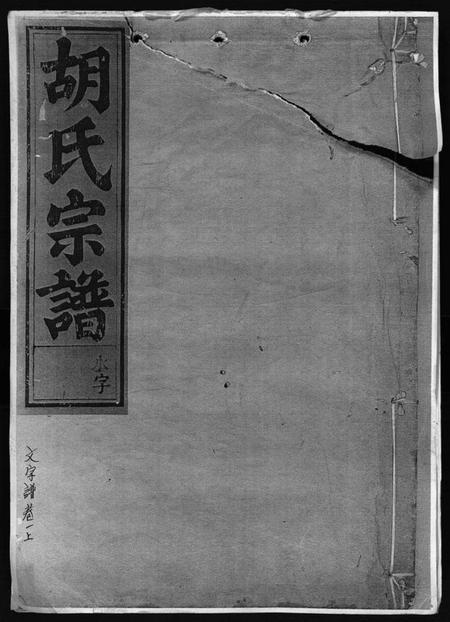 胡氏宗譜
水字
文字譜卷一上